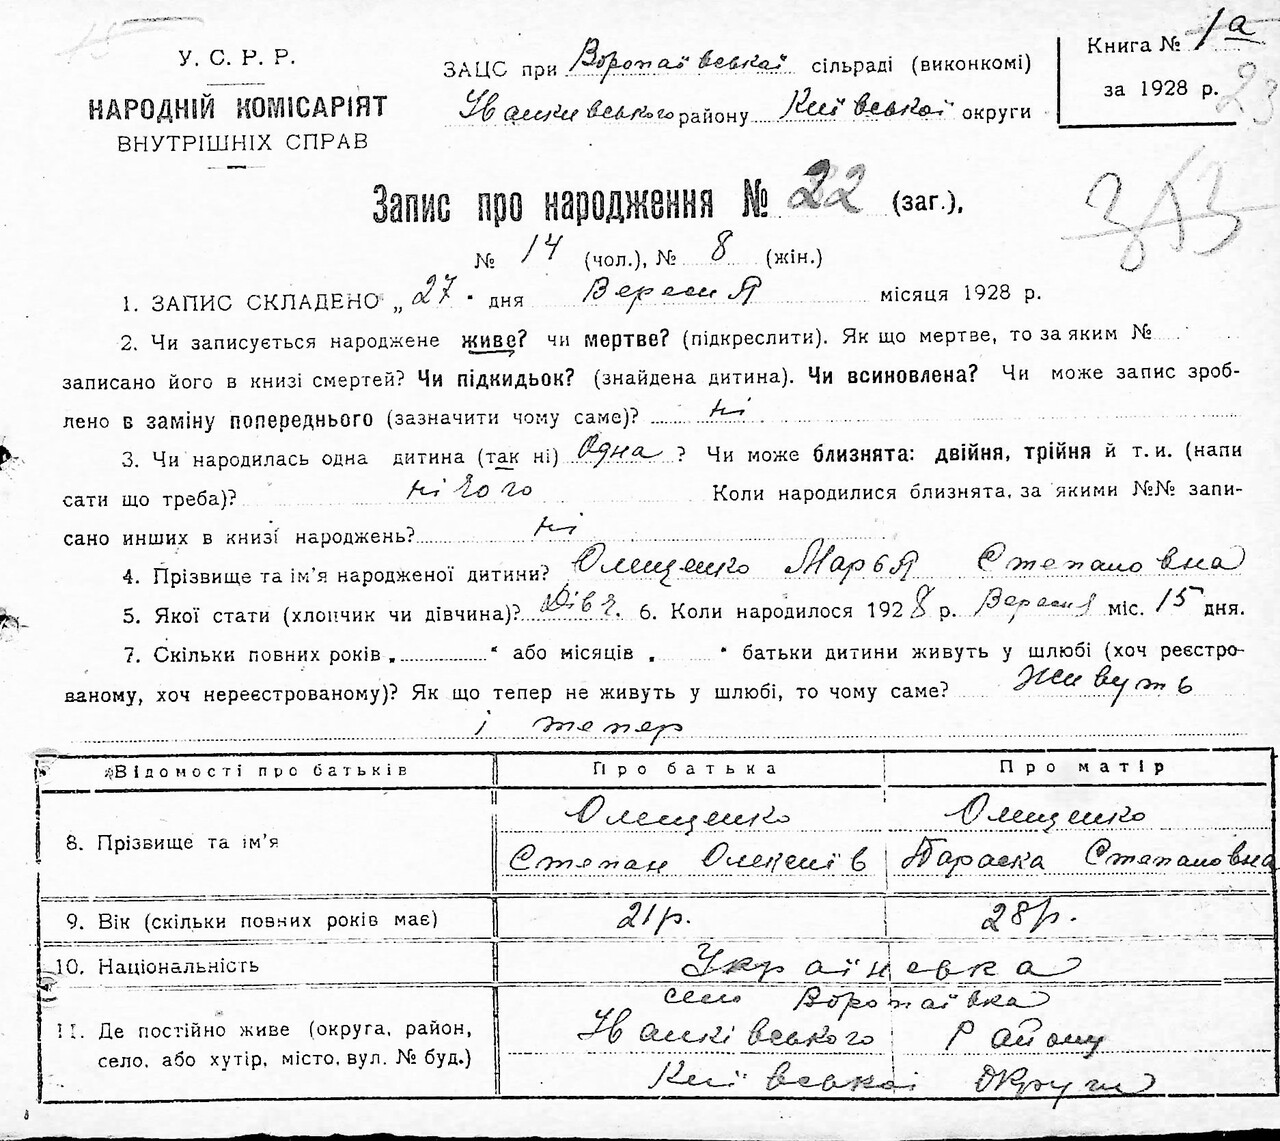 У. С. Р. Р.
НАРОДНІЙ КОМІСАРІЯТ
ВНУТРІШНІХ СПРАВ
ЗАЦС при Воропаївській сільраді (виконкомі)
Іванківського району Київської округи
Книга № 1а
за 1928 р.
23
Запис про народження № 22 (заг.),
353
№ 14 (чол.), № 8 (жін.)
1. ЗАПИС СКЛАДЕНО „27" дня Вересня місяця 1928 р.
2. Чи записується народжене живе? чи мертве? (підкреслити). Як що мертве, то за яким №
записано його в книзі смертей? Чи підкидьок? (знайдена дитина). Чи всиновлена? Чи може запис зроб-
лено в заміну попереднього (зазначити чому саме)? ні
3. Чи народилась одна дитина (так ні) Одна? Чи може близнята: двійня, трійня й т. и. (напи
сати що треба)? нічого Коли народилися близнята, за якими №№ запи-
сано инших в книзі народжень? ні
4. Прізвище та ім'я народженої дитини? Олещенко Марья Степановна
5. Якої стати (хлопчик чи дівчина)? Дівч. 6. Коли народилося 1928 р. Вересня міс. 15 дня.
7. Скільки повних років „ " або місяців „ " батьки дитини живуть у шлюбі (хоч реєстро-
ваному, хоч нереєстрованому)? Як що тепер не живуть у шлюбі, то чому саме? живуть
і тепер
Відомості про батьків Про батька Про матір
8. Прізвище та ім'я Олещенко Олещенко
Степан Олексіів Параска Степановна
9. Вік (скільки повних років має) 21р. 28р.
10. Національність Українська
11. Де постійно живе (округа, район, село, або хутір, місто, вул. № буд.) село Воропаївка
Іванківського Району
Київської Округи